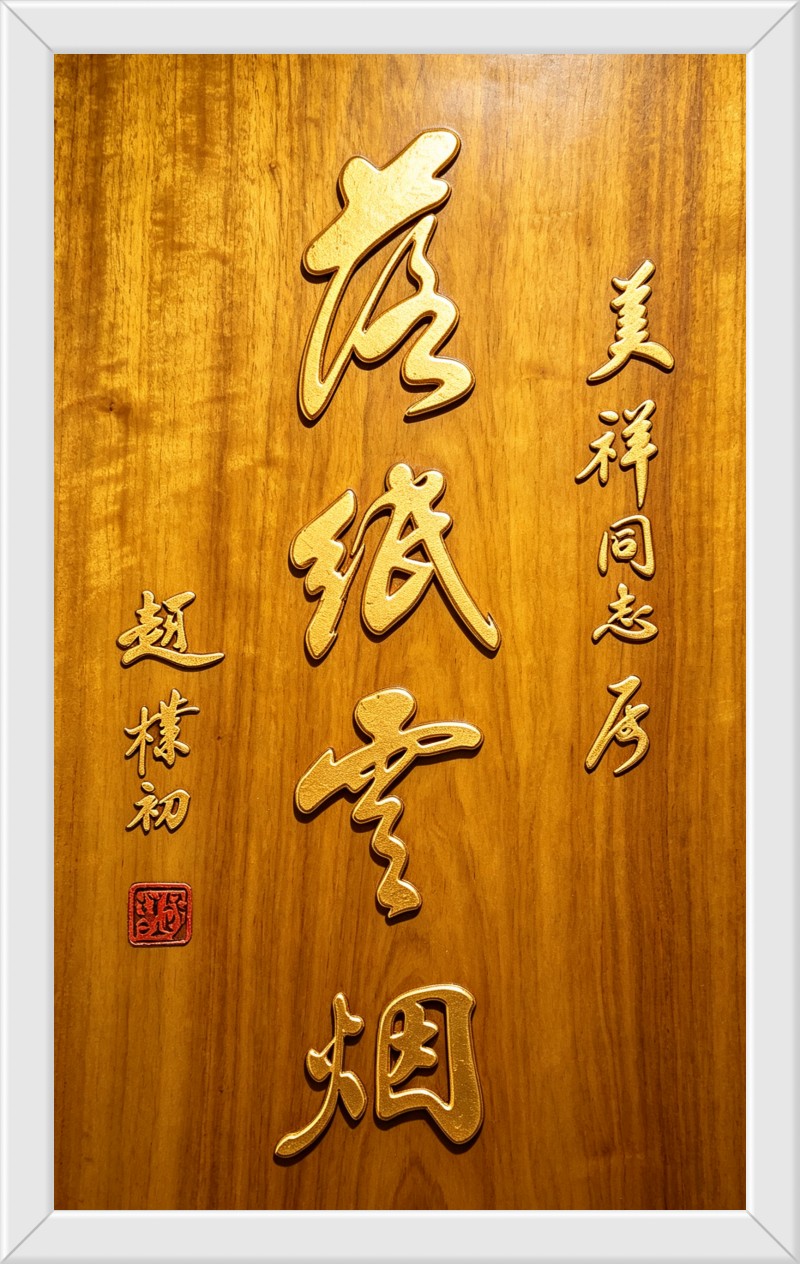 美祥同志属
落纸雲烟
趙樸初